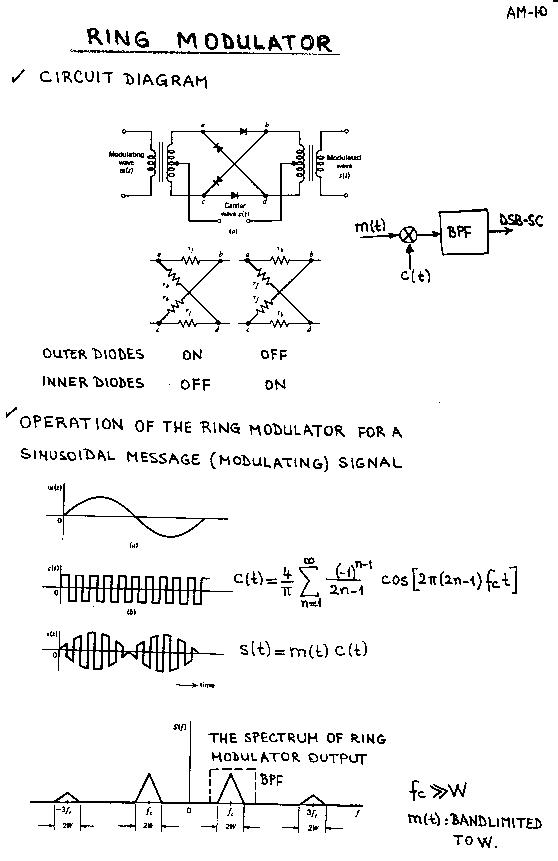 AM-10
RING MODULATOR
✓ CIRCUIT DIAGRAM
a b
Modulating wave m(t)
Modulated wave s(t)
c d
Carrier wave c(t)
(a)
m(t) BPF DSB-SC
c(t)
a rf b a rb b
rb rf
rb rf
c rf d c rb d
OUTER DIODES ON OFF
INNER DIODES OFF ON
✓ OPERATION OF THE RING MODULATOR FOR A
SINUSOIDAL MESSAGE (MODULATING) SIGNAL
m(t)
0
(a)
c(t)
0
(b)
C(t) = 4/π ∑ n=1 ∞ (-1)^n-1 / 2n-1 cos[2π(2n-1)fc t]
s(t)
0
s(t) = m(t) c(t)
time
S(f)
THE SPECTRUM OF RING
MODULATOR OUTPUT
BPF
fc ≫ W
m(t): BANDLIMITED
TO W.
-3fc fc 0 fc 3fc f
2W 2W 2W 2W